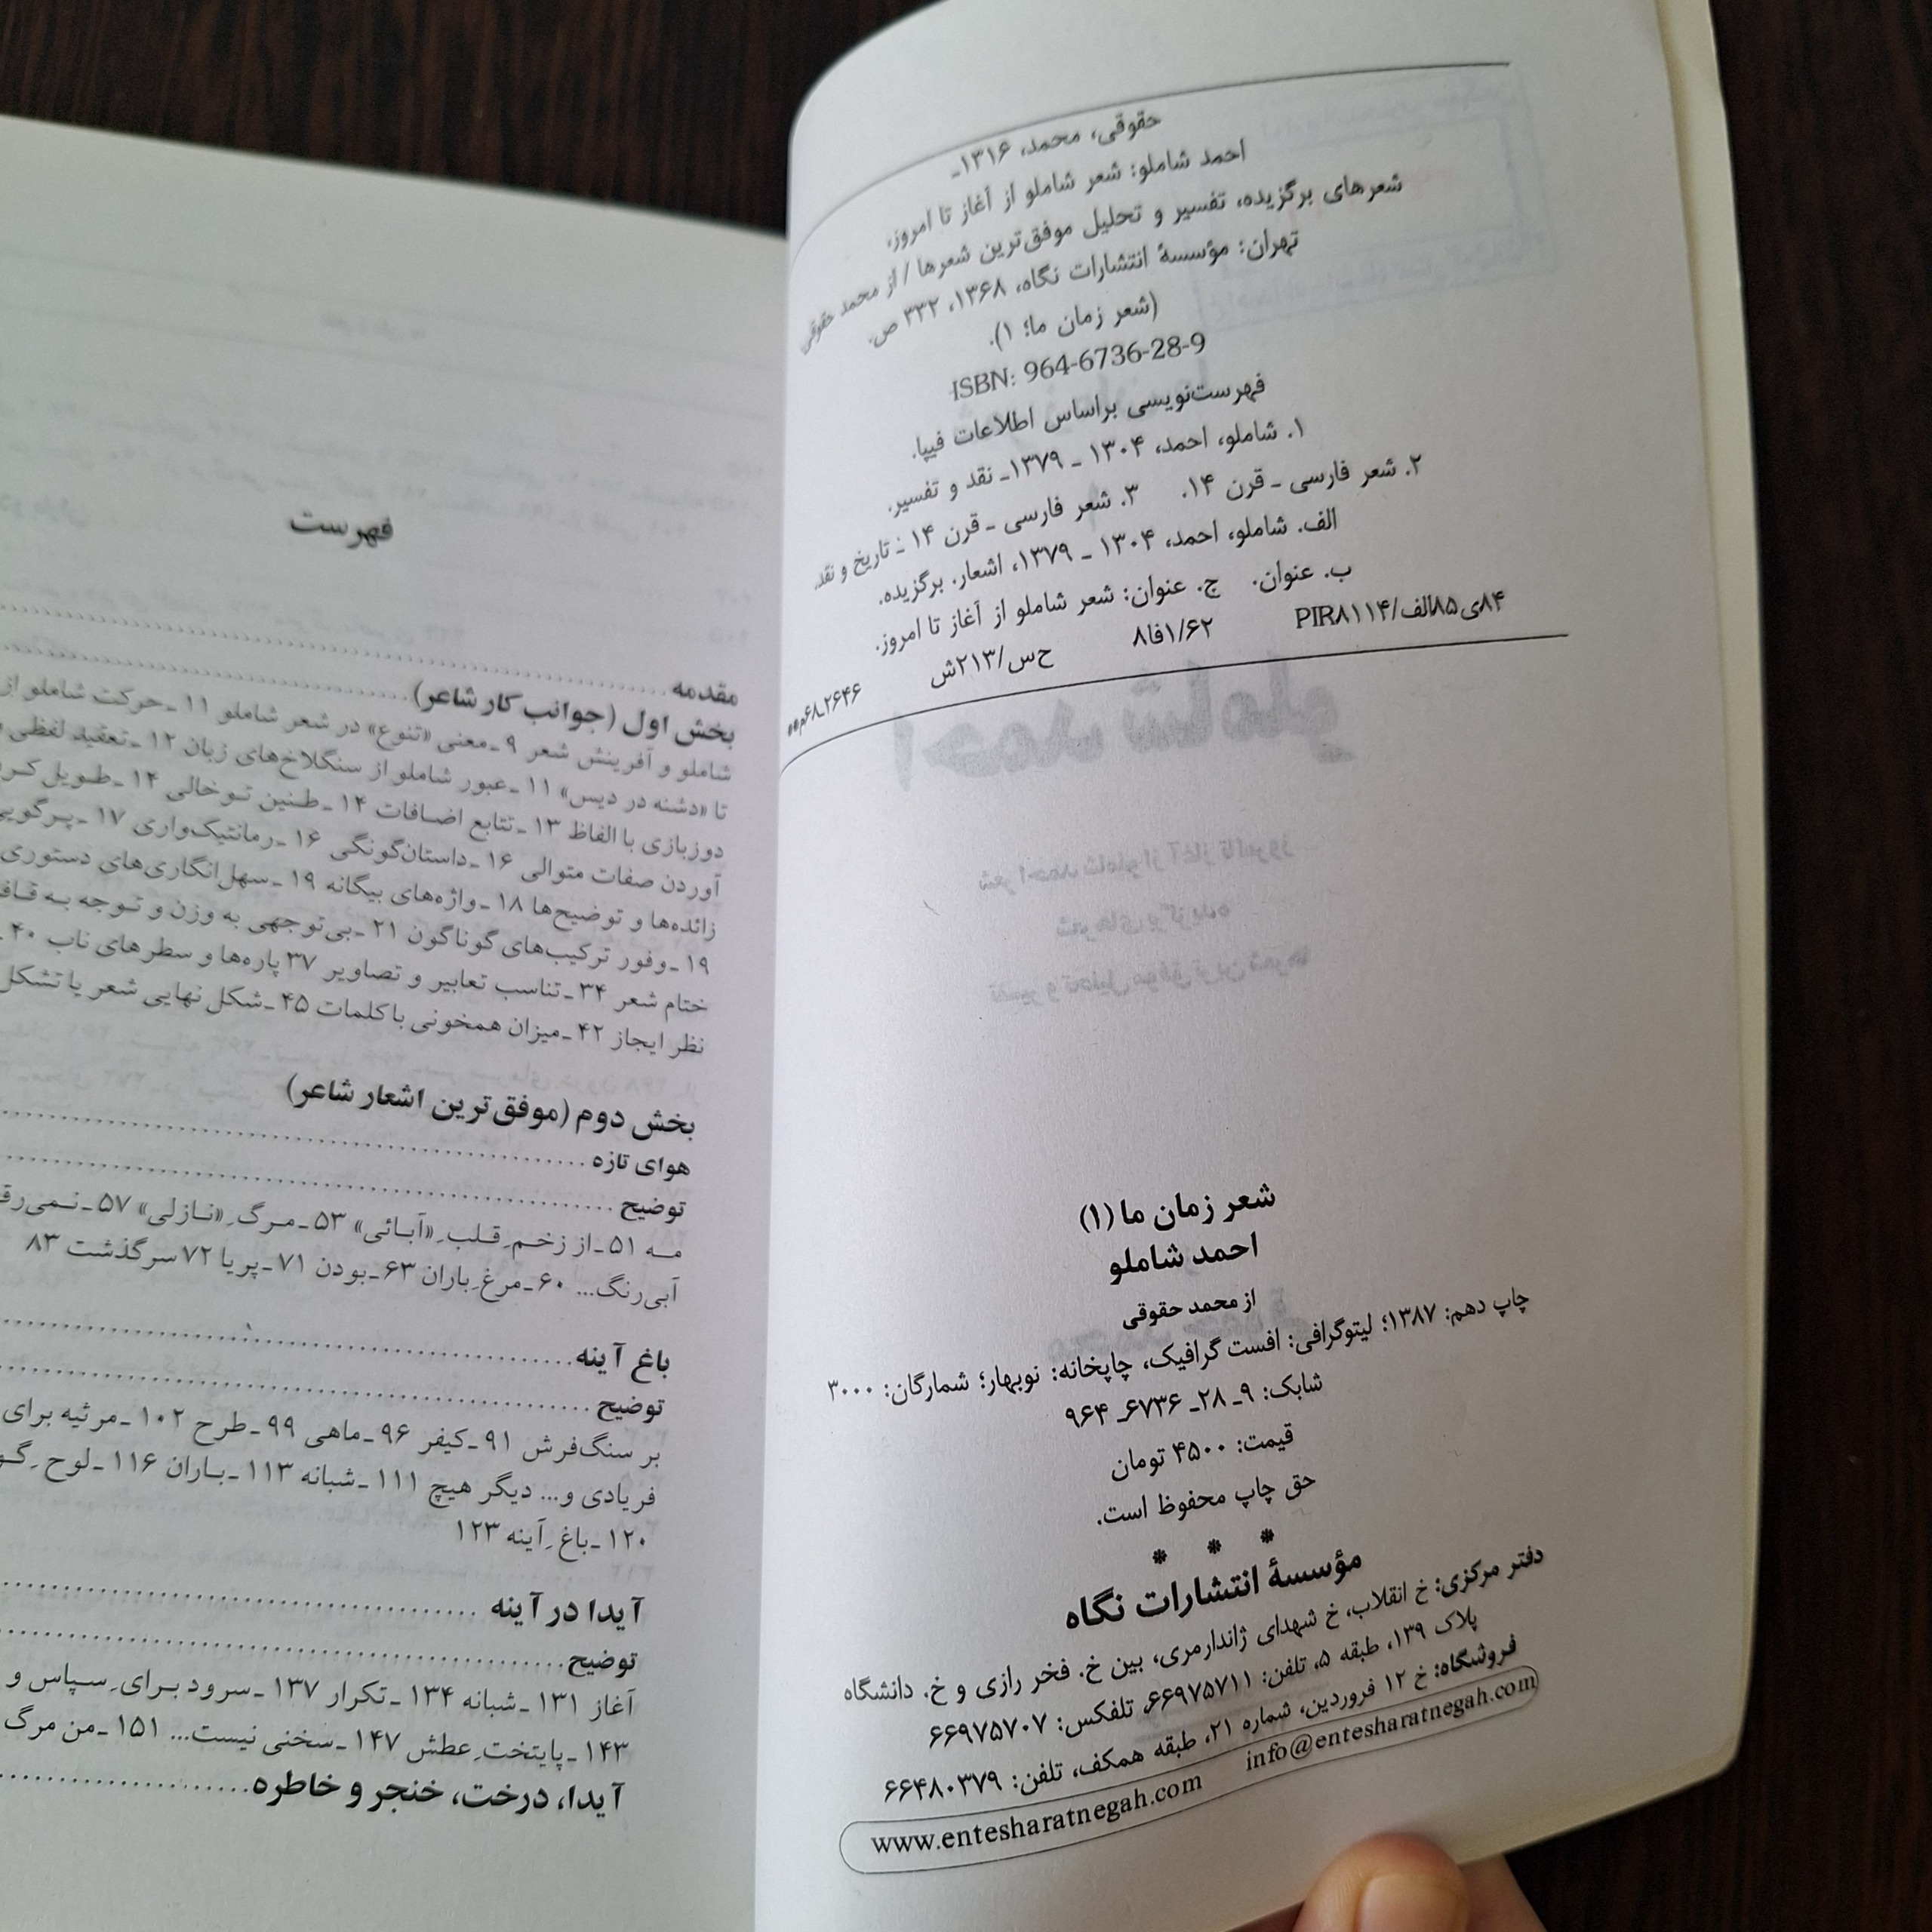 حقوقی، محمد، ۱۳۱۶ـ
احمد شاملو: شعر شاملو از آغاز تا امروز،
شعرهای برگزیده، تفسیر و تحلیل موفق‌ترین شعرها / از محمد حقوقی.
تهران: مؤسسهٔ انتشارات نگاه، ۱۳۶۸، ۳۳۲ ص.
(شعر زمان ما؛ ۱).
ISBN: 964-6736-28-9
فهرست‌نویسی براساس اطلاعات فیپا.
۱. شاملو، احمد، ۱۳۰۴ ـ ۱۳۷۹ـ نقد و تفسیر.
۲. شعر فارسی ـ قرن ۱۴. ۳. شعر فارسی ـ قرن ۱۴ ـ تاریخ و نقد.
الف. شاملو، احمد، ۱۳۰۴ ـ ۱۳۷۹، اشعار. برگزیده.
ب. عنوان. ج. عنوان: شعر شاملو از آغاز تا امروز.
۸۴ی۸۵الف/PIR۸۱۱۴ ۸فا۱/۶۲ ح‌س/۲۱۳ش ۲۶۴۶ـ۶۸م
شعر زمان ما (۱)
احمد شاملو
از محمد حقوقی
چاپ دهم: ۱۳۸۷؛ لیتوگرافی: افست گرافیک، چاپخانه: نوبهار؛ شمارگان: ۳۰۰۰
شابک: ۹ـ ۲۸ـ ۶۷۳۶ـ ۹۶۴
قیمت: ۴۵۰۰ تومان
حق چاپ محفوظ است.
* * *
مؤسسهٔ انتشارات نگاه
دفتر مرکزی: خ انقلاب، خ شهدای ژاندارمری، بین خ. فخر رازی و خ. دانشگاه
پلاک ۱۳۹، طبقه ۵، تلفن: ۶۶۹۷۵۷۱۱، تلفکس: ۶۶۹۷۵۷۰۷
فروشگاه: خ ۱۲ فروردین، شماره ۲۱، طبقه همکف، تلفن: ۶۶۴۸۰۳۷۹
www.entesharatnegah.com info@entesharatnegah.com
فهرست
مقدمه
بخش اول (جوانب کار شاعر)
شاملو و آفرینش شعر ۹ ـ معنی «تنوع» در شعر شاملو ۱۱ ـ حرکت شاملو از
تا «دشنه در دیس» ۱۱ ـ عبور شاملو از سنگلاخ‌های زبان ۱۲ ـ تعقید لفظی
دوزبازی با الفاظ ۱۳ ـ تتابع اضافات ۱۴ ـ طنین توخالی ۱۴ ـ طویل
آوردن صفات متوالی ۱۶ ـ داستان‌گونگی ۱۶ ـ رمانتیک‌واری ۱۷ ـ پرگویی
زائده‌ها و توضیح‌ها ۱۸ ـ واژه‌های بیگانه ۱۹ ـ سهل‌انگاری‌های دستوری
۱۹ ـ وفور ترکیب‌های گوناگون ۲۱ ـ بی‌توجهی به وزن و توجه به
ختام شعر ۳۴ ـ تناسب تعابیر و تصاویر ۳۷ پاره‌ها و سطرهای ناب ۴۰ ـ
نظر ایجاز ۴۲ ـ میزان همخونی با کلمات ۴۵ ـ شکل نهایی شعر یا تشکل
بخش دوم (موفق‌ترین اشعار شاعر)
هوای تازه
توضیح
مه ۵۱ ـ از زخمِ قلبِ «آبائی» ۵۳ ـ مرگِ «نازلی» ۵۷ ـ
آبی‌رنگ... ۶۰ ـ مرغِ باران ۶۳ ـ بودن ۷۱ ـ پریا ۷۲ سرگذشت ۸۳
باغ آینه
توضیح
بر سنگ‌فرش ۹۱ ـ کیفر ۹۶ ـ ماهی ۹۹ ـ طرح ۱۰۲ ـ مرثیه برای
فریادی و... دیگر هیچ ۱۱۱ ـ شبانه ۱۱۳ ـ باران ۱۱۶ ـ لوحِ
۱۲۰ ـ باغِ آینه ۱۲۳
آیدا در آینه
توضیح
آغاز ۱۳۱ ـ شبانه ۱۳۴ ـ تکرار ۱۳۷ ـ سرود برایِ سپاس و
۱۴۳ ـ پایتختِ عطش ۱۴۷ ـ سخنی نیست... ۱۵۱ ـ من مرگ
آیدا، درخت، خنجر و خاطره